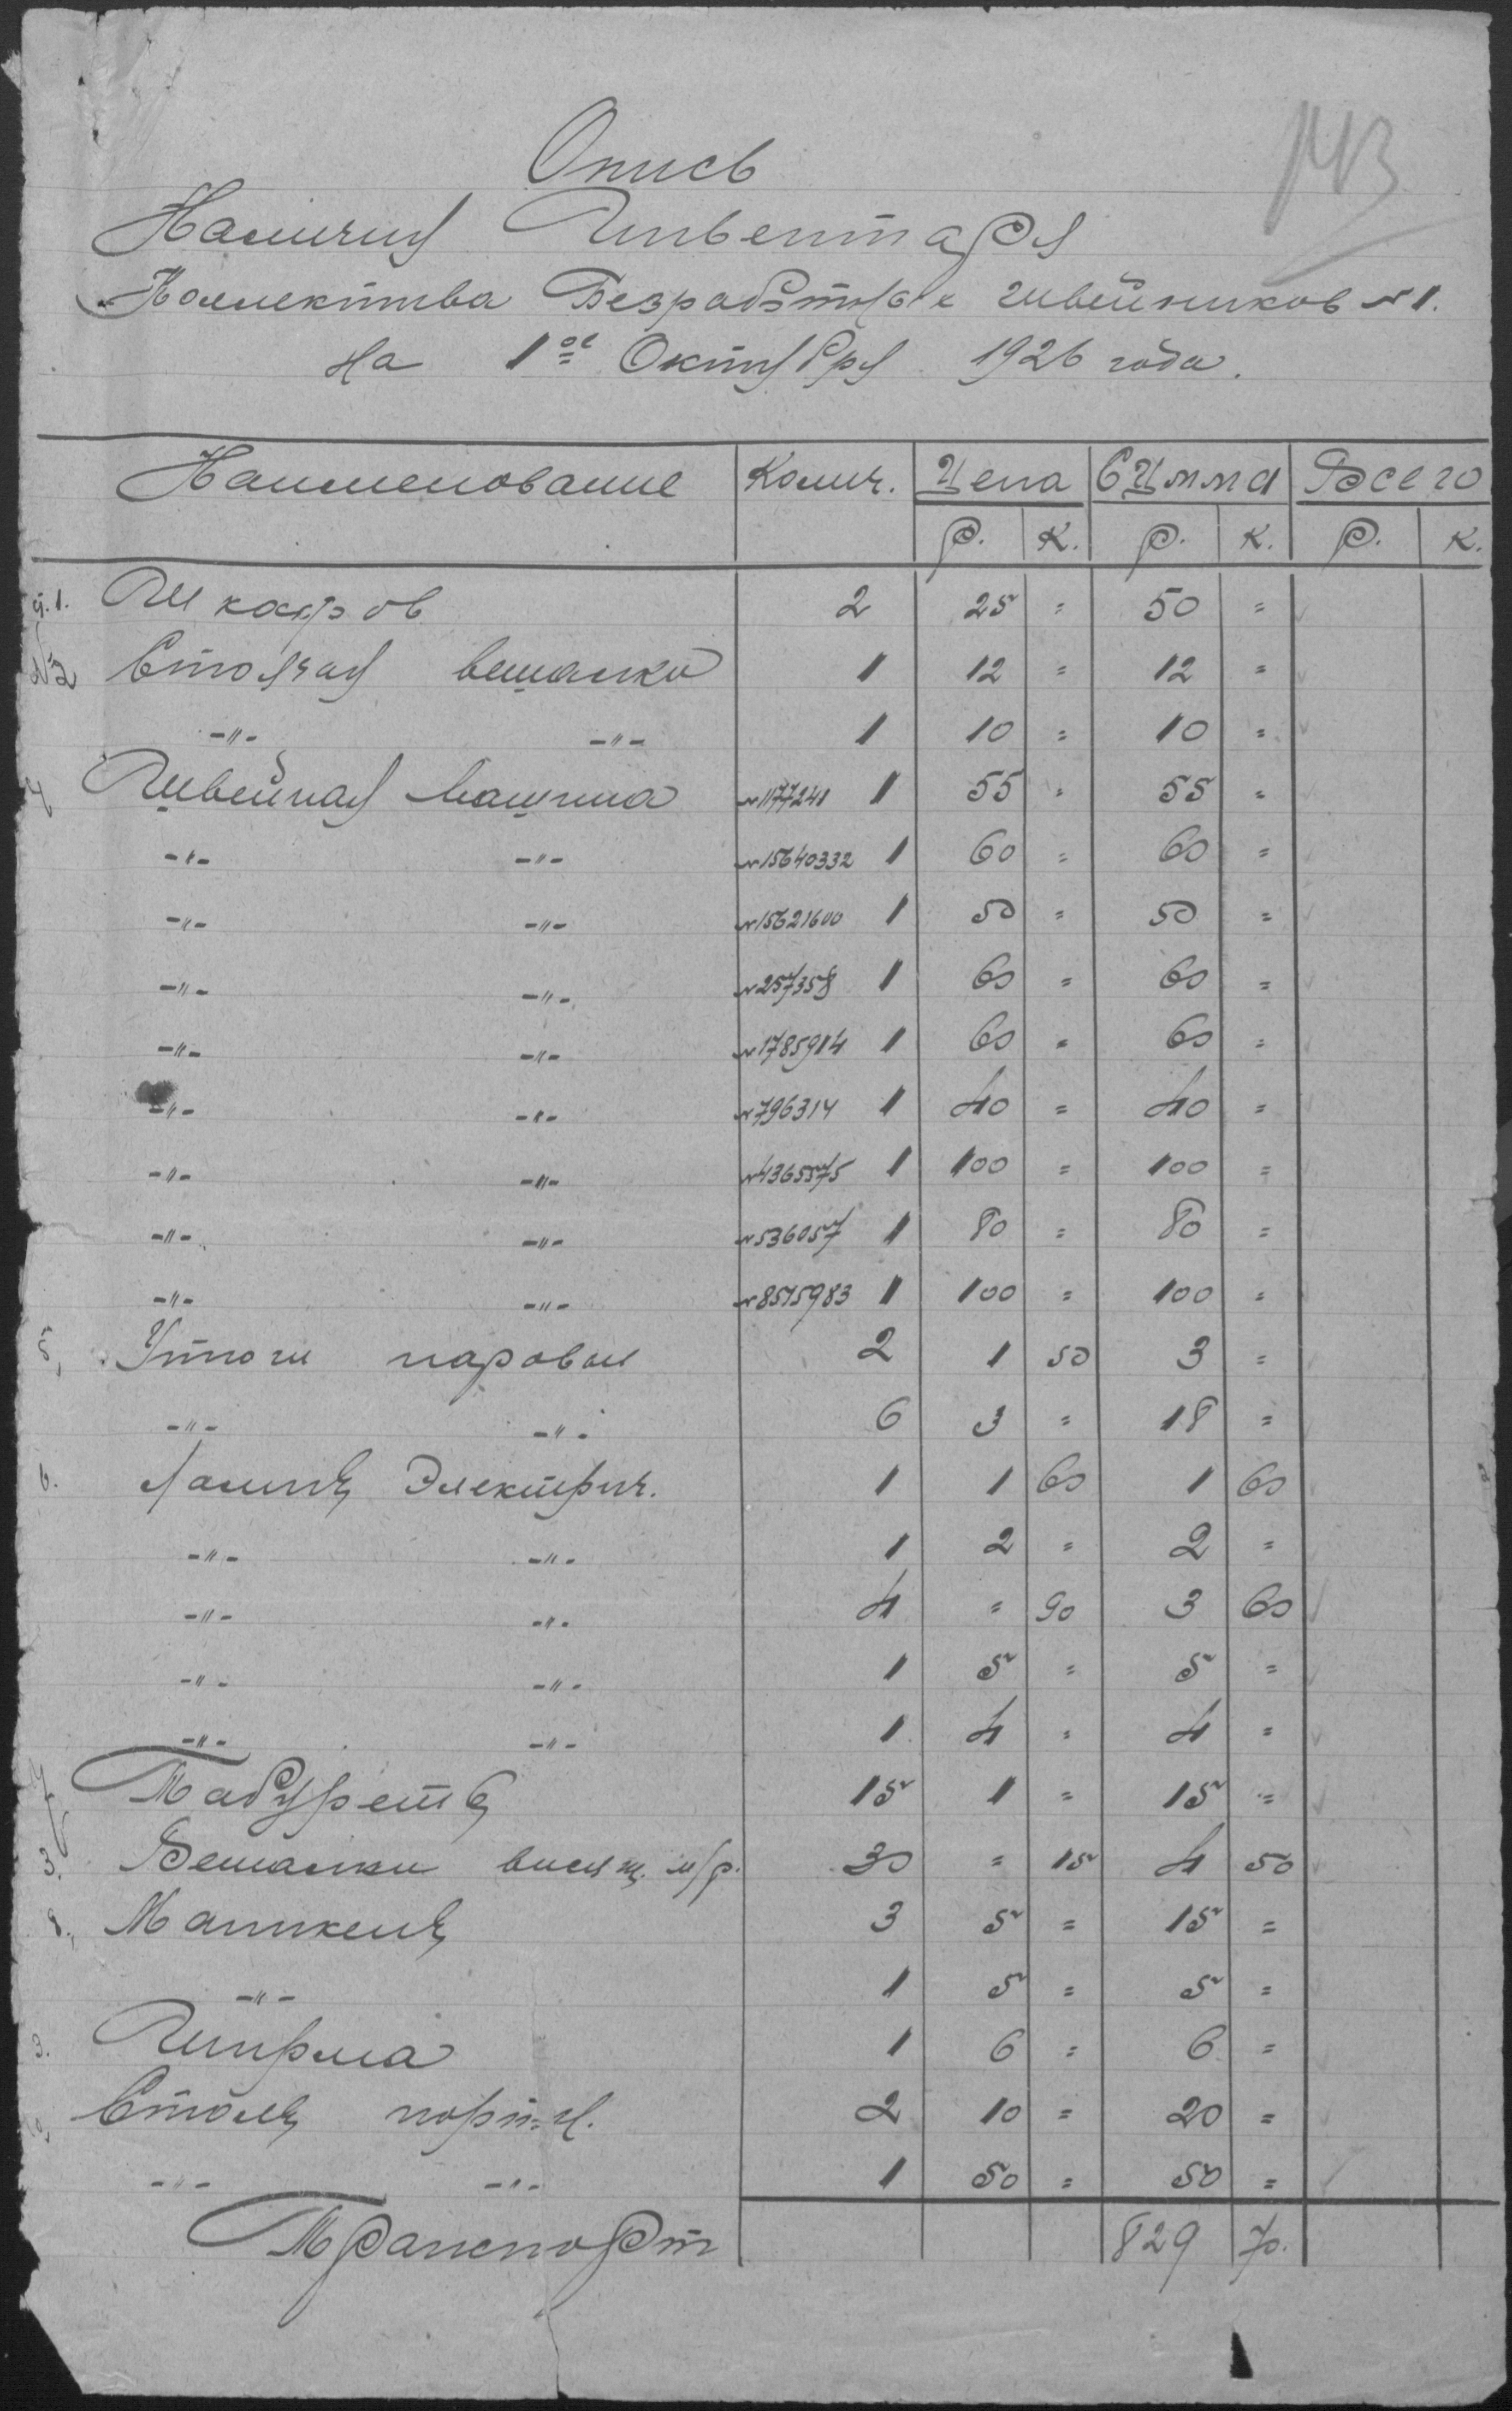 143
Опись
Наличия Инвентаря
Коллектива Безработных швейников №1.
на 1ое Октября 1926 года.
Наименование Колич. Цена Сумма Всего
Р. К. Р. К. Р. К.
п.1. Шкафов 2 25 = 50 =
№2 Стоячая вешалка 1 12 = 12 =
-"- -"- 1 10 = 10 =
4 Швейная машина №1177241 1 55 = 55 =
-"- -"- №15640332 1 60 = 60 =
-"- -"- №15621600 1 50 = 50 =
-"- -"- №257358 1 60 = 60 =
-"- -"- №1785914 1 60 = 60 =
-"- -"- №796314 1 40 = 40 =
-"- -"- №4365575 1 100 = 100 =
-"- -"- №536057 1 80 = 80 =
-"- -"- №8515983 1 100 = 100 =
5, Утюги паровые 2 1 50 3 =
-"- -"- 6 3 = 18 =
6. Лампы Электрич. 1 1 60 1 60
-"- -"- 1 2 = 2 =
-"- -"- 4 = 90 3 60
-"- -"- 1 5 = 5 =
-"- -"- 1 4 = 4 =
7 Табуреты 15 1 = 15 =
3. Вешалки висящ. м/р. 30 = 15 4 50
8, Маникены 3 5 = 15 =
-"- 1 5 = 5 =
9. Ширма 1 6 = 6 =
10, Столы порт-н. 2 10 = 20 =
-"- -"- 1 50 = 50 =
Транспорт 829 70.